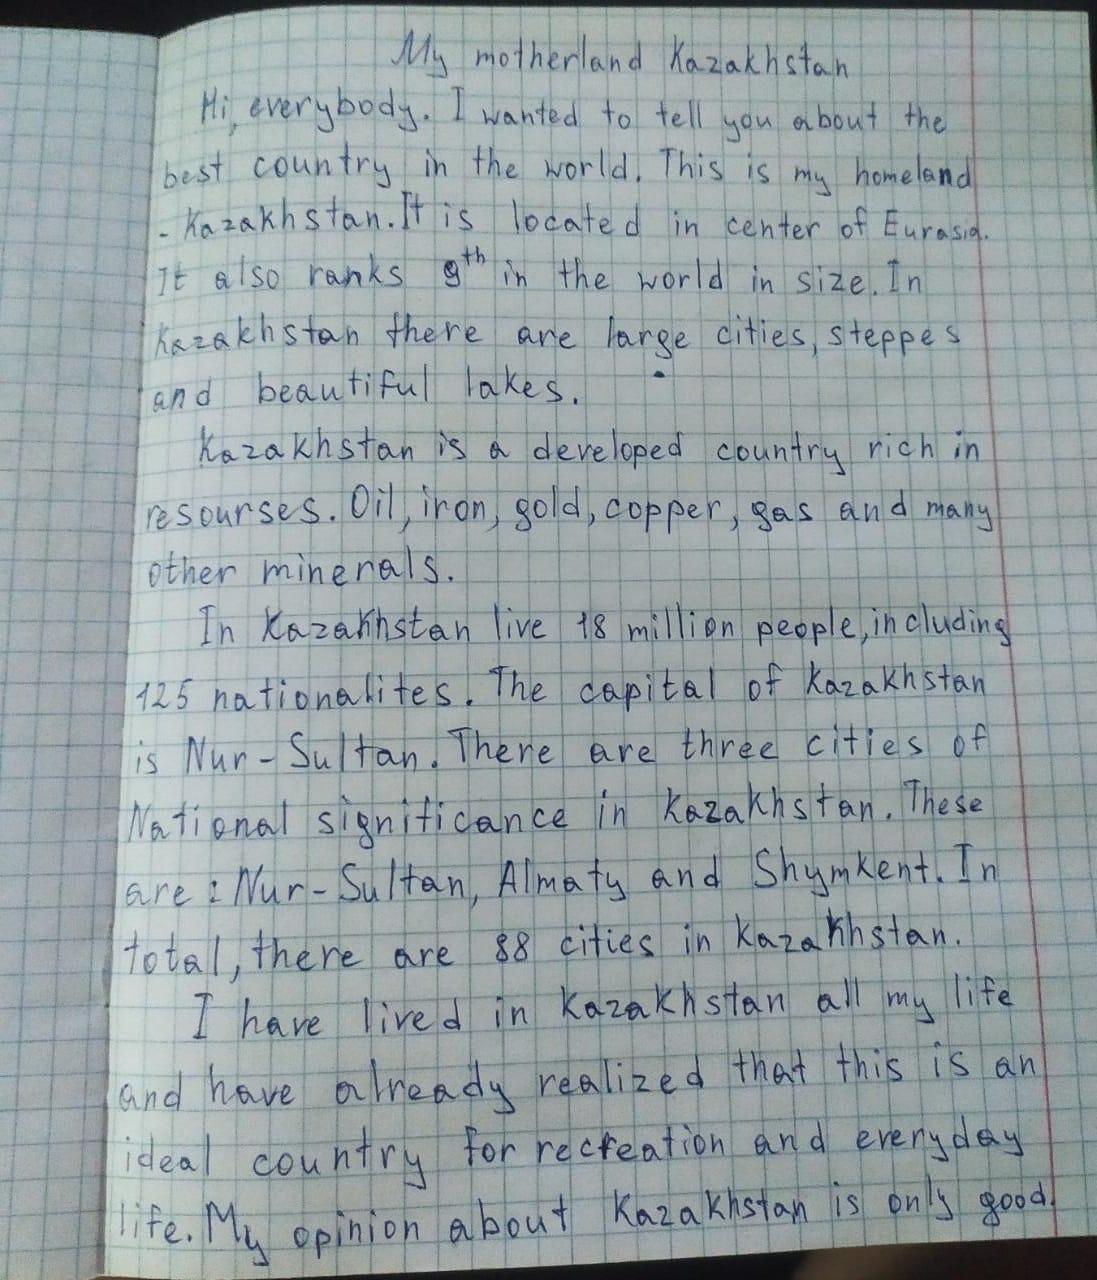 My motherland Kazakhstan
Hi, everybody. I wanted to tell you about the
best country in the world. This is my homeland
- Kazakhstan. It is located in center of Eurasia.
It also ranks 9th in the world in size. In
Kazakhstan there are large cities, steppes
and beautiful lakes.
Kazakhstan is a developed country rich in
resourses. Oil, iron, gold, copper, gas and many
other minerals.
In Kazakhstan live 18 million people, including
125 nationalites. The capital of Kazakhstan
is Nur-Sultan. There are three cities of
National significance in Kazakhstan. These
are: Nur-Sultan, Almaty and Shymkent. In
total, there are 88 cities in Kazakhstan.
I have lived in Kazakhstan all my life
and have already realized that this is an
ideal country for recreation and everyday
life. My opinion about Kazakhstan is only good.